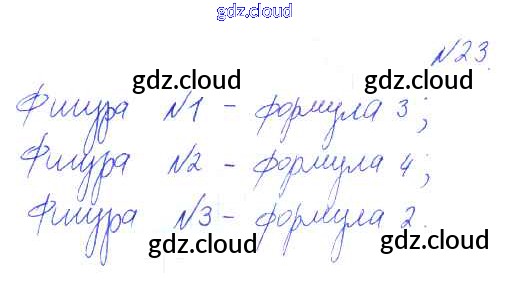 gdz.cloud
№23.
gdz.cloud gdz.cloud
Фигура №1 - формула 3;
gdz.cloud gdz.cloud
Фигура №2 - формула 4;
Фигура №3 - формула 2.
gdz.cloud gdz.cloud